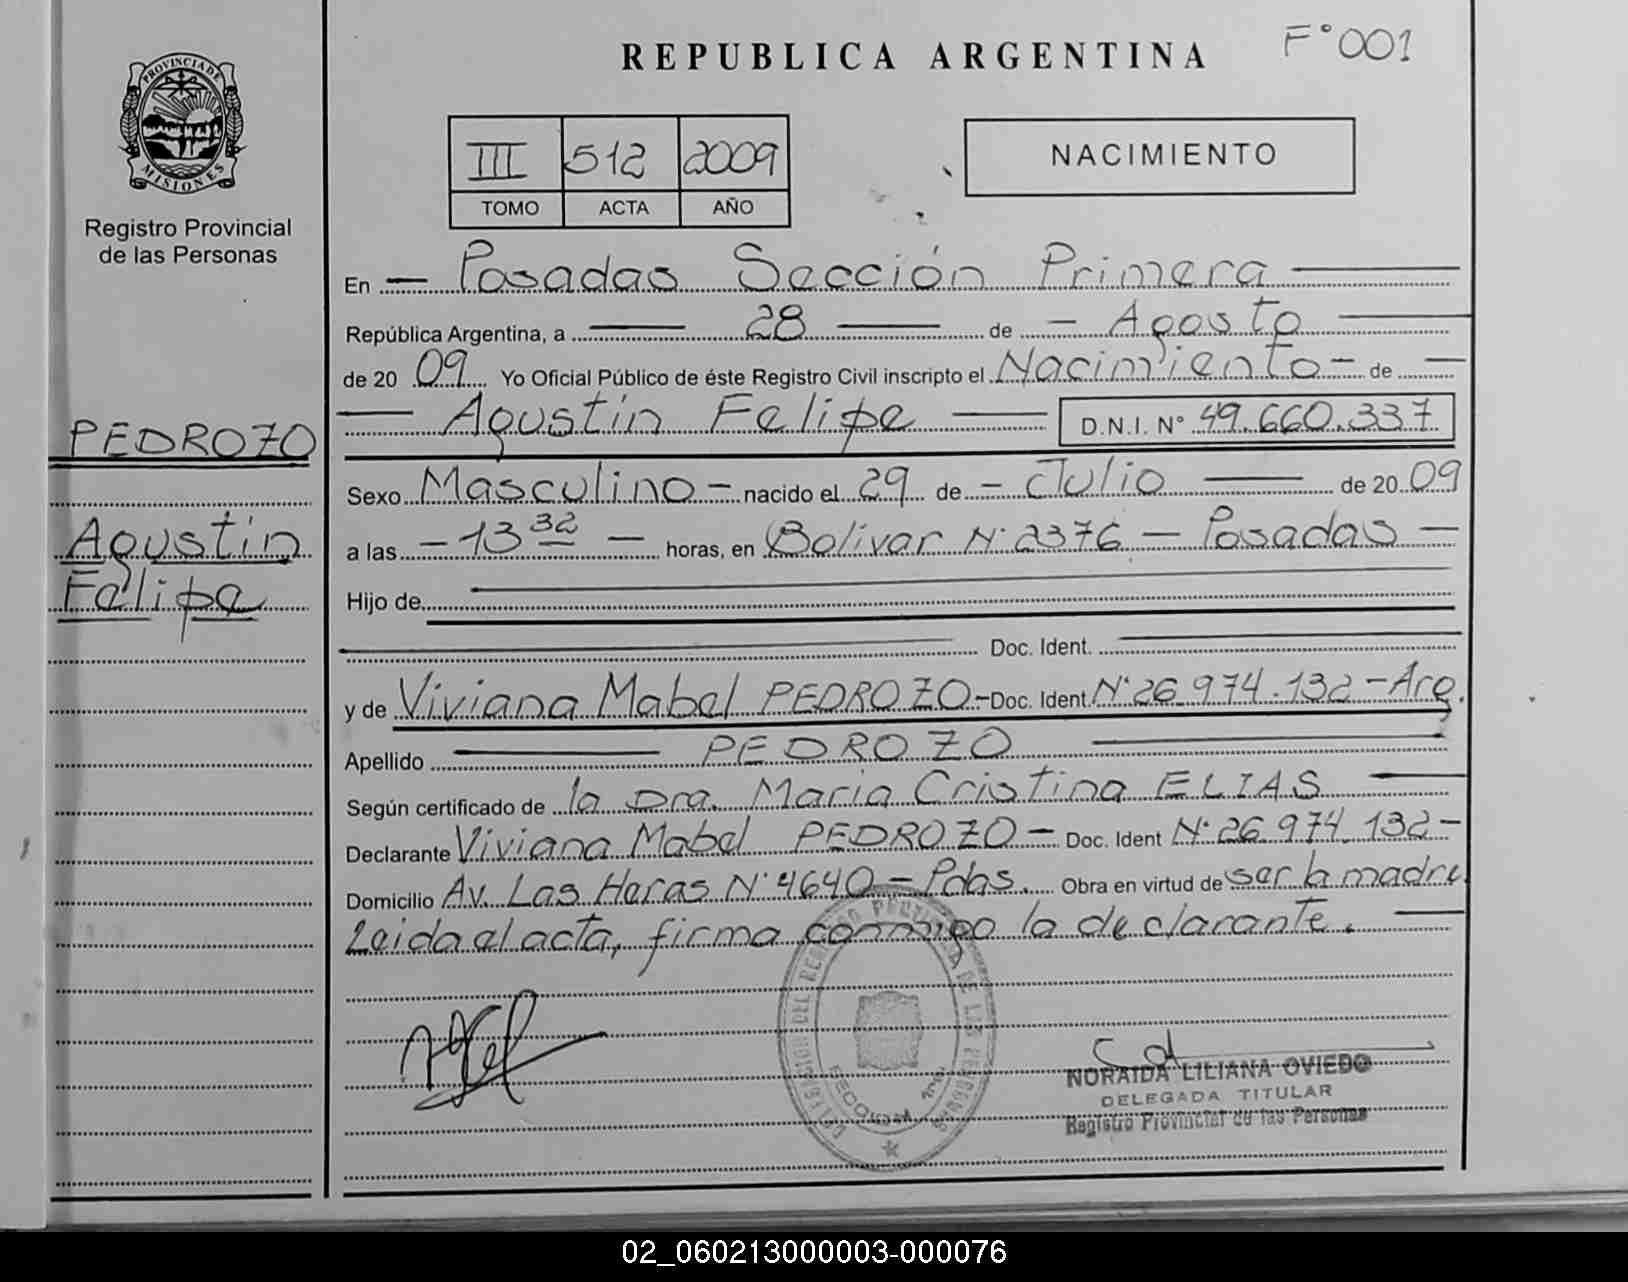 REPUBLICA ARGENTINA
F° 001
PROVINCIA DE
MISIONES
Registro Provincial
de las Personas
III 512 2009
TOMO ACTA AÑO
NACIMIENTO
En Posadas Sección Primera
República Argentina, a 28 de Agosto
de 20 09 Yo Oficial Público de éste Registro Civil inscripto el Nacimiento de
Agustín Felipe D.N.I. N° 49.660.337
PEDROZO
Agustín
Felipe
Sexo Masculino nacido el 29 de Julio de 20 09
a las 13 32 horas, en Bolívar N° 2376 - Posadas
Hijo de
Doc. Ident.
y de Viviana Mabel PEDROZO - Doc. Ident. N° 26.974.132 - Arg.
Apellido PEDROZO
Según certificado de la Dra. María Cristina ELIAS
Declarante Viviana Mabel PEDROZO - Doc. Ident N° 26.974.132 -
Domicilio Av. Las Heras N° 4640 - Pdas. Obra en virtud de ser la madre
Leida el acta, firma conmigo la declarante.
NORAIDA LILIANA OVIEDO
DELEGADA TITULAR
Registro Provincial de las Personas
02_060213000003-000076